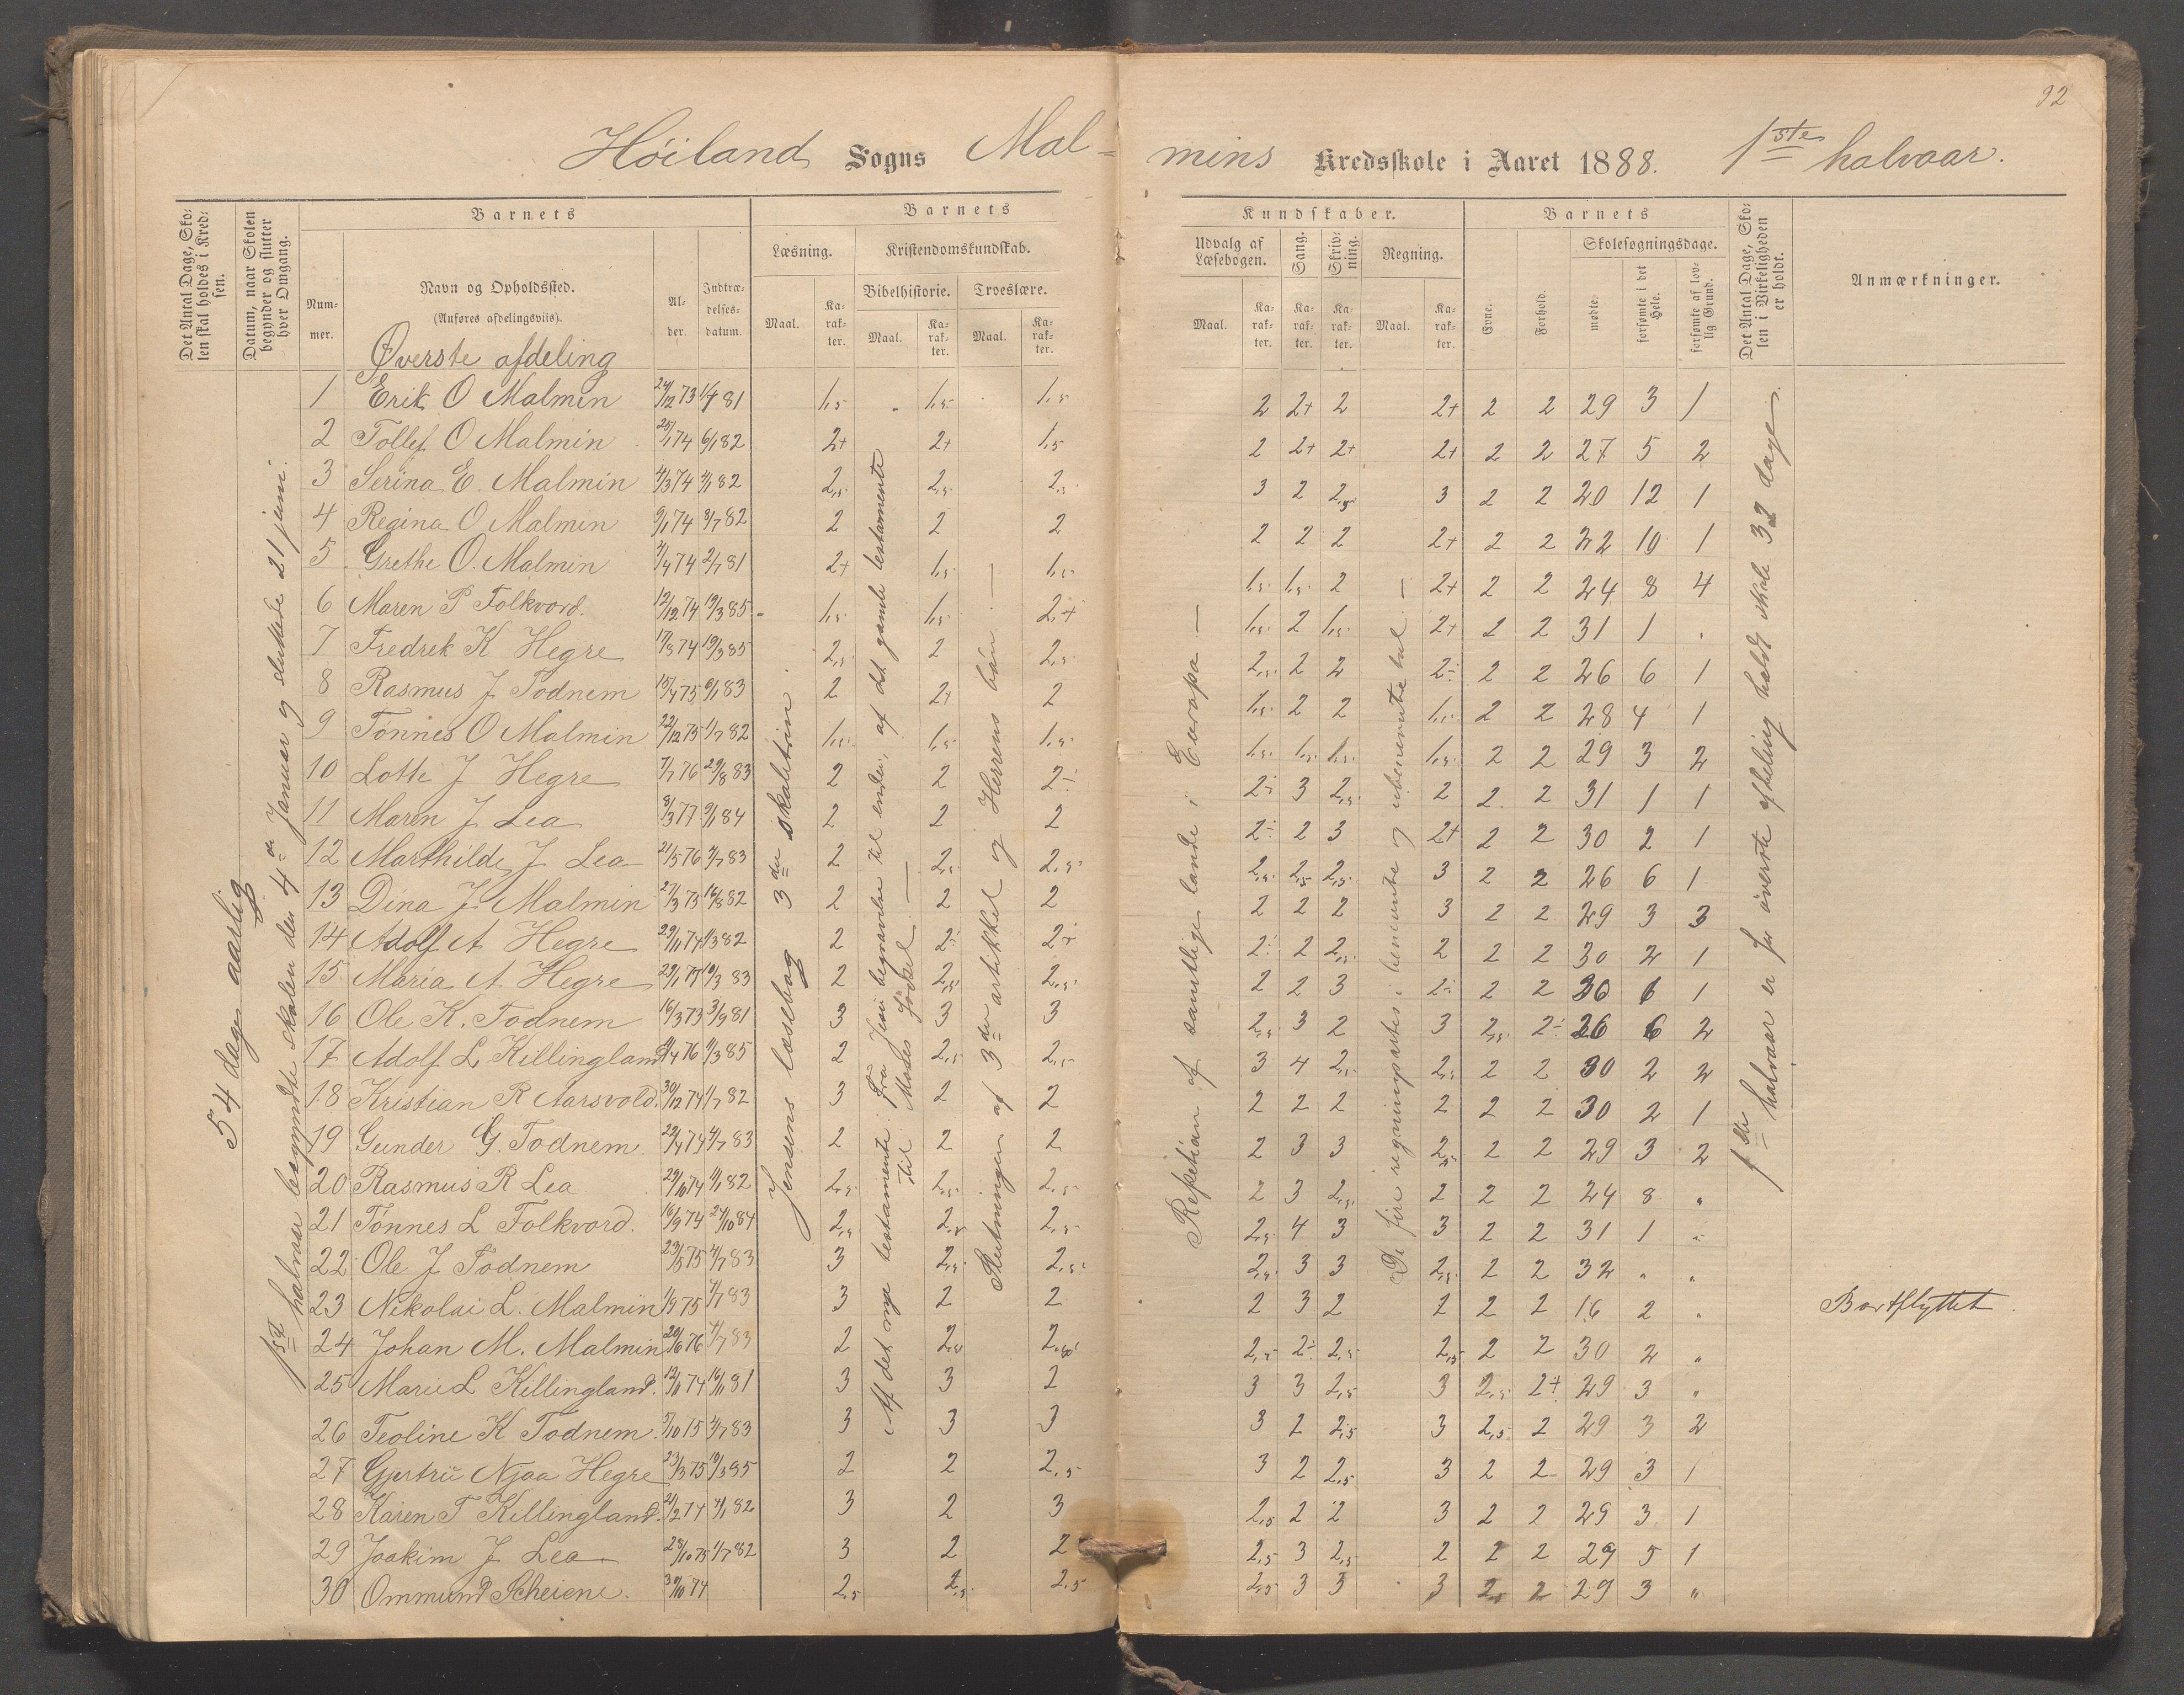 92
Høiland Sogns Mal-
mins Kredsskole i Aaret 1888. 1ste halvaar.
Det Antal Dage, Skolen skal holdes i Kredsen.
Datum, naar Skolen begynder og slutter hver Omgang.
Barnets
Nummer.
Navn og Opholdssted.
(Anføres afdelingsviis).
Alder.
Indtrædelsesdatum.
Barnets
Læsning.
Maal.
Karakter.
Kristendomskundskab.
Bibelhistorie.
Maal.
Karakter.
Troeslære.
Maal.
Karakter.
Kundskaber.
Udvalg af Læsebogen.
Maal.
Karakter.
Sang.
Karakter.
Skrivning.
Karakter.
Regning.
Maal.
Karakter.
Barnets
Evne.
Forhold.
Skolesøgningsdage.
mødte.
forsømte i det Hele.
forsømte af lovlig Grund.
Det Antal Dage, Skolen i Virkeligheden er holdt.
Anmærkninger.
54 dage aarlig
1ste halvaar begyndte skolen den 4de Januar og sluttede 21 juni.
Jensens læsebog 3die skoletrin.
Af det nye testamente: Fra Jesu begravelse til enden, af det gamle testamente
til Moses Fødsel —
Slutningen af 3die artikkel og Herrens bøn. —
Repetition af samtlige lande i Europa —
De fire regningsarter i benevnte og ubenevnte tal. —
1ste halvaar er for øverste afdeling holdt skole 32 dage.
Øverste afdeling
1 Erik O Malmin 24/12 73 1/7 81 1,5 1,5 1,5 2 2+ 2 2+ 2 2 29 3 1
2 Tollef O Malmin 25/1 74 6/1 82 2+ 2+ 1,5 2 2+ 2+ 2+ 2 2 27 5 2
3 Serina E. Malmin 4/3 74 2/1 82 2,5 2,5 2,5 3 2 2,5 3 2 2 20 12 1
4 Regina O Malmin 9/1 74 3/7 82 2 2 2 2 2 2 2+ 2 2 22 10 1
5 Grethe O. Malmin 2/4 74 2/7 81 2+ 1,5 1,5 1,5 1,5 2 2+ 2 2 24 8 4
6 Maren P Folkvord. 12/12 74 19/3 85 1,5 1,5 2+ 1,5 2 1,5 2+ 2 2 31 1 "
7 Fredrek K Hegre 17/8 74 19/3 85 2,5 2 2,5 2,5 2 2 2÷ 2 2 26 6 1
8 Rasmus J Todnem 15/4 75 6/1 83 2 2+ 2 1,5 2 2 1,5 2 2 28 4 1
9 Tønnes O Malmin 22/12 75 1/7 82 1,5 1,5 1,5 1,5 1,5 1,5 1,5 2 2 29 3 2
10 Lotte J Hegre 7/7 76 29/8 83 2 2 2÷ 2÷ 3 2,5 2 2 2 31 1 1
11 Maren J Lea 8/3 77 9/1 84 2 2 2 2÷ 2 3 2+ 2 2 30 2 1
12 Marthilde J Lea 21/5 76 2/7 83 2 2,5 2,5 2,5 2,5 2,5 3 2 2 26 6 1
13 Dina J. Malmin 27/3 73 16/8 82 2 2 2 2 2 2 3 2 2 29 3 3
14 Adolf A Hegre 29/11 74 1/3 82 2 2÷ 2÷ 2÷ 2 2,5 2 2 2 30 2 1
15 Maria A Hegre 19/3 83 2 2,5 2,5 2 2 3 2÷ 2 2 1
16 Ole K. Todnem 16/3 73 3/9 81 3 3 3 2,5 3 2 3 2,5 2÷ 26 6 2
17 Adolf L Killingland 4/3 85 2 2,5 2,5 3 4 2,5 2,5 2 2 30 2 2
18 Kristian R Aarsvold. 30/12 74 1/7 82 3 2 2 2 2 2 2 2 2 30 2 1
19 Gunder G. Todnem. 4/7 83 2 2 2 2 3 3 2,5 2 2 29 3 2
20 Rasmus R Lea 29/10 74 1/1 82 2,5 2,5 2,5 2 3 2,5 2 2 2 24 8 "
21 Tønnes L Folkvord. 16/9 74 27/10 84 2,5 2,5 2,5 2,5 4 3 3 2 2 31 1 "
22 Ole J Todnem 23/5 75 4/7 83 3 2,5 2,5 2,5 3 3 2,5 2 2 32 " "
23 Nikolai L. Malmin 1/9 75 4/7 83 3 2 2 2 3 2 2 2 2 16 2 " Bortflyttet.
24 Johan M. Malmin 20/6 76 4/7 83 2 2,5 2,5 2,5 2÷ 2,5 2,5 2 2 30 2 "
25 Marie L Killingland. 12/11 74 16/11 81 3 3 2 3 3 2,5 3 2,5 2+ 29 3 "
26 Teoline K Todnem. 5/10 75 2/7 83 3 3 3 3 2 2,5 3 2,5 2 29 3 2
27 Gjertrü Njaa Hegre 23/3 75 19/3 85 2 2 2,5 3 2 2,5 3 2 2 29 3 1
28 Karen T Killingland. 21/2 74 4/1 82 3 2 3 2,5 2 2 3 2 2 29 3 1
29 Joakim J Lea 28/10 75 1/7 82 3 2 2 2,5 3 2,5 2 2 2 29 5 1
30 Ommund Scheiene. 30/10 74 2,5 2,5 2,5 2,5 3 3 3 2 2 29 3 "